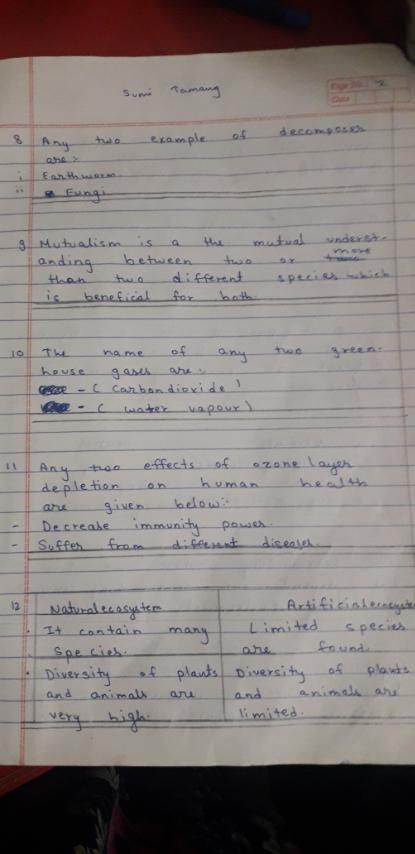 Sumi Tamang
Page No. 2
Date
8 Any two example of decomposer
are :-
i Earthworm
ii Fungi
9 Mutualism is a the mutual underst-
anding between two or more
than two different species which
is benefical for both.
10 The name of any two green-
house gases are :-
- ( Carbondioxide )
- ( water vapour )
11 Any two effects of ozone layer
depletion on human health
are given below :-
- Decrease immunity power.
- Suffer from different diseases.
12 Natural ecosystem Artificial ecosyste
• It contain many Limited species
species. are found.
• Diversity of plants Diversity of plants
and animals are and animals are
very high. limited.